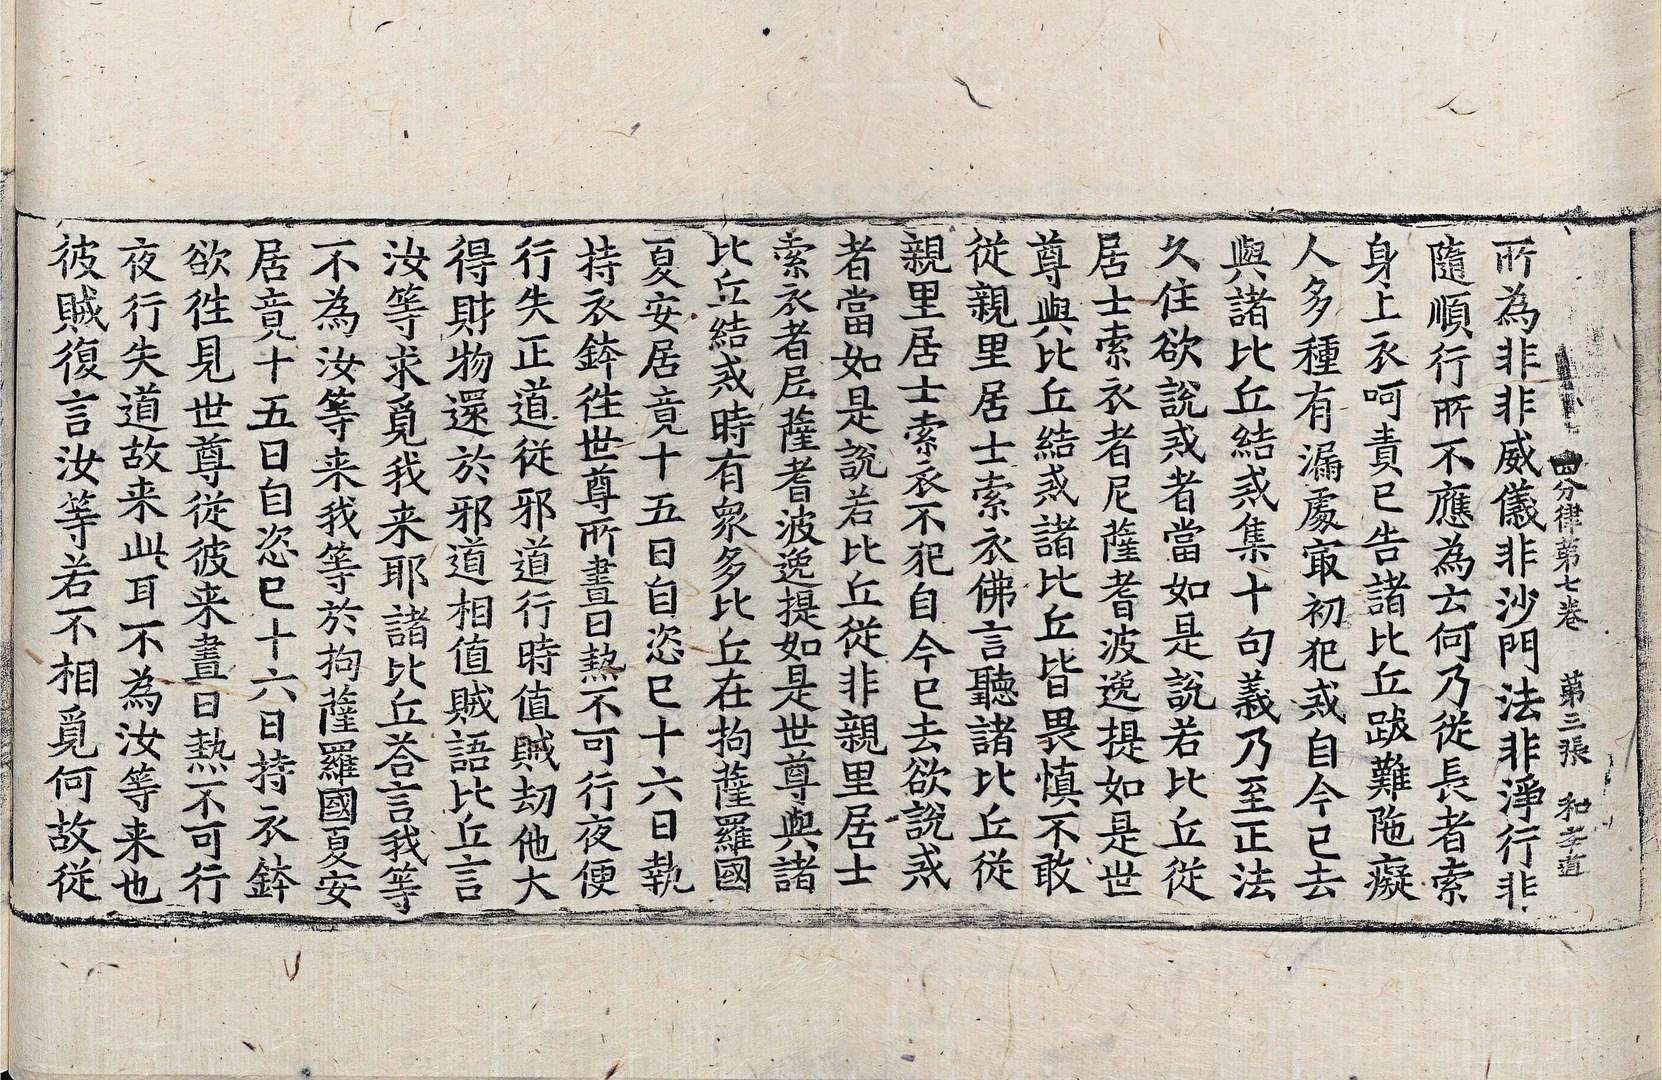 四分律第七卷 第三張 和
所為非非威儀非沙門法非淨行非
隨順行所不應為云何乃從長者索
身上衣呵責已告諸比丘跋難陁癡
人多種有漏處㝡初犯戒自今已去
與諸比丘結戒集十句義乃至正法
久住欲說戒者當如是說若比丘從
居士索衣者尼薩耆波逸提如是世
尊與比丘結戒諸比丘皆畏慎不敢
從親里居士索衣佛言聽諸比丘從
親里居士索衣不犯自今已去欲說戒
者當如是說若比丘從非親里居士
索衣者尼薩耆波逸提如是世尊與諸
比丘結戒時有眾多比丘在拘薩羅國
夏安居竟十五日自恣已十六日執
持衣鉢徃世尊所晝日熱不可行夜便
行失正道從邪道行時值賊劫他大
得財物還於邪道相值賊語比丘言
汝等求覓我来耶諸比丘荅言我等
不為汝等来我等於拘薩羅國夏安
居竟十五日自恣已十六日持衣鉢
欲徃見世尊從彼来晝日熱不可行
夜行失道故来此耳不為汝等来也
彼賊復言汝等若不相覓何故從